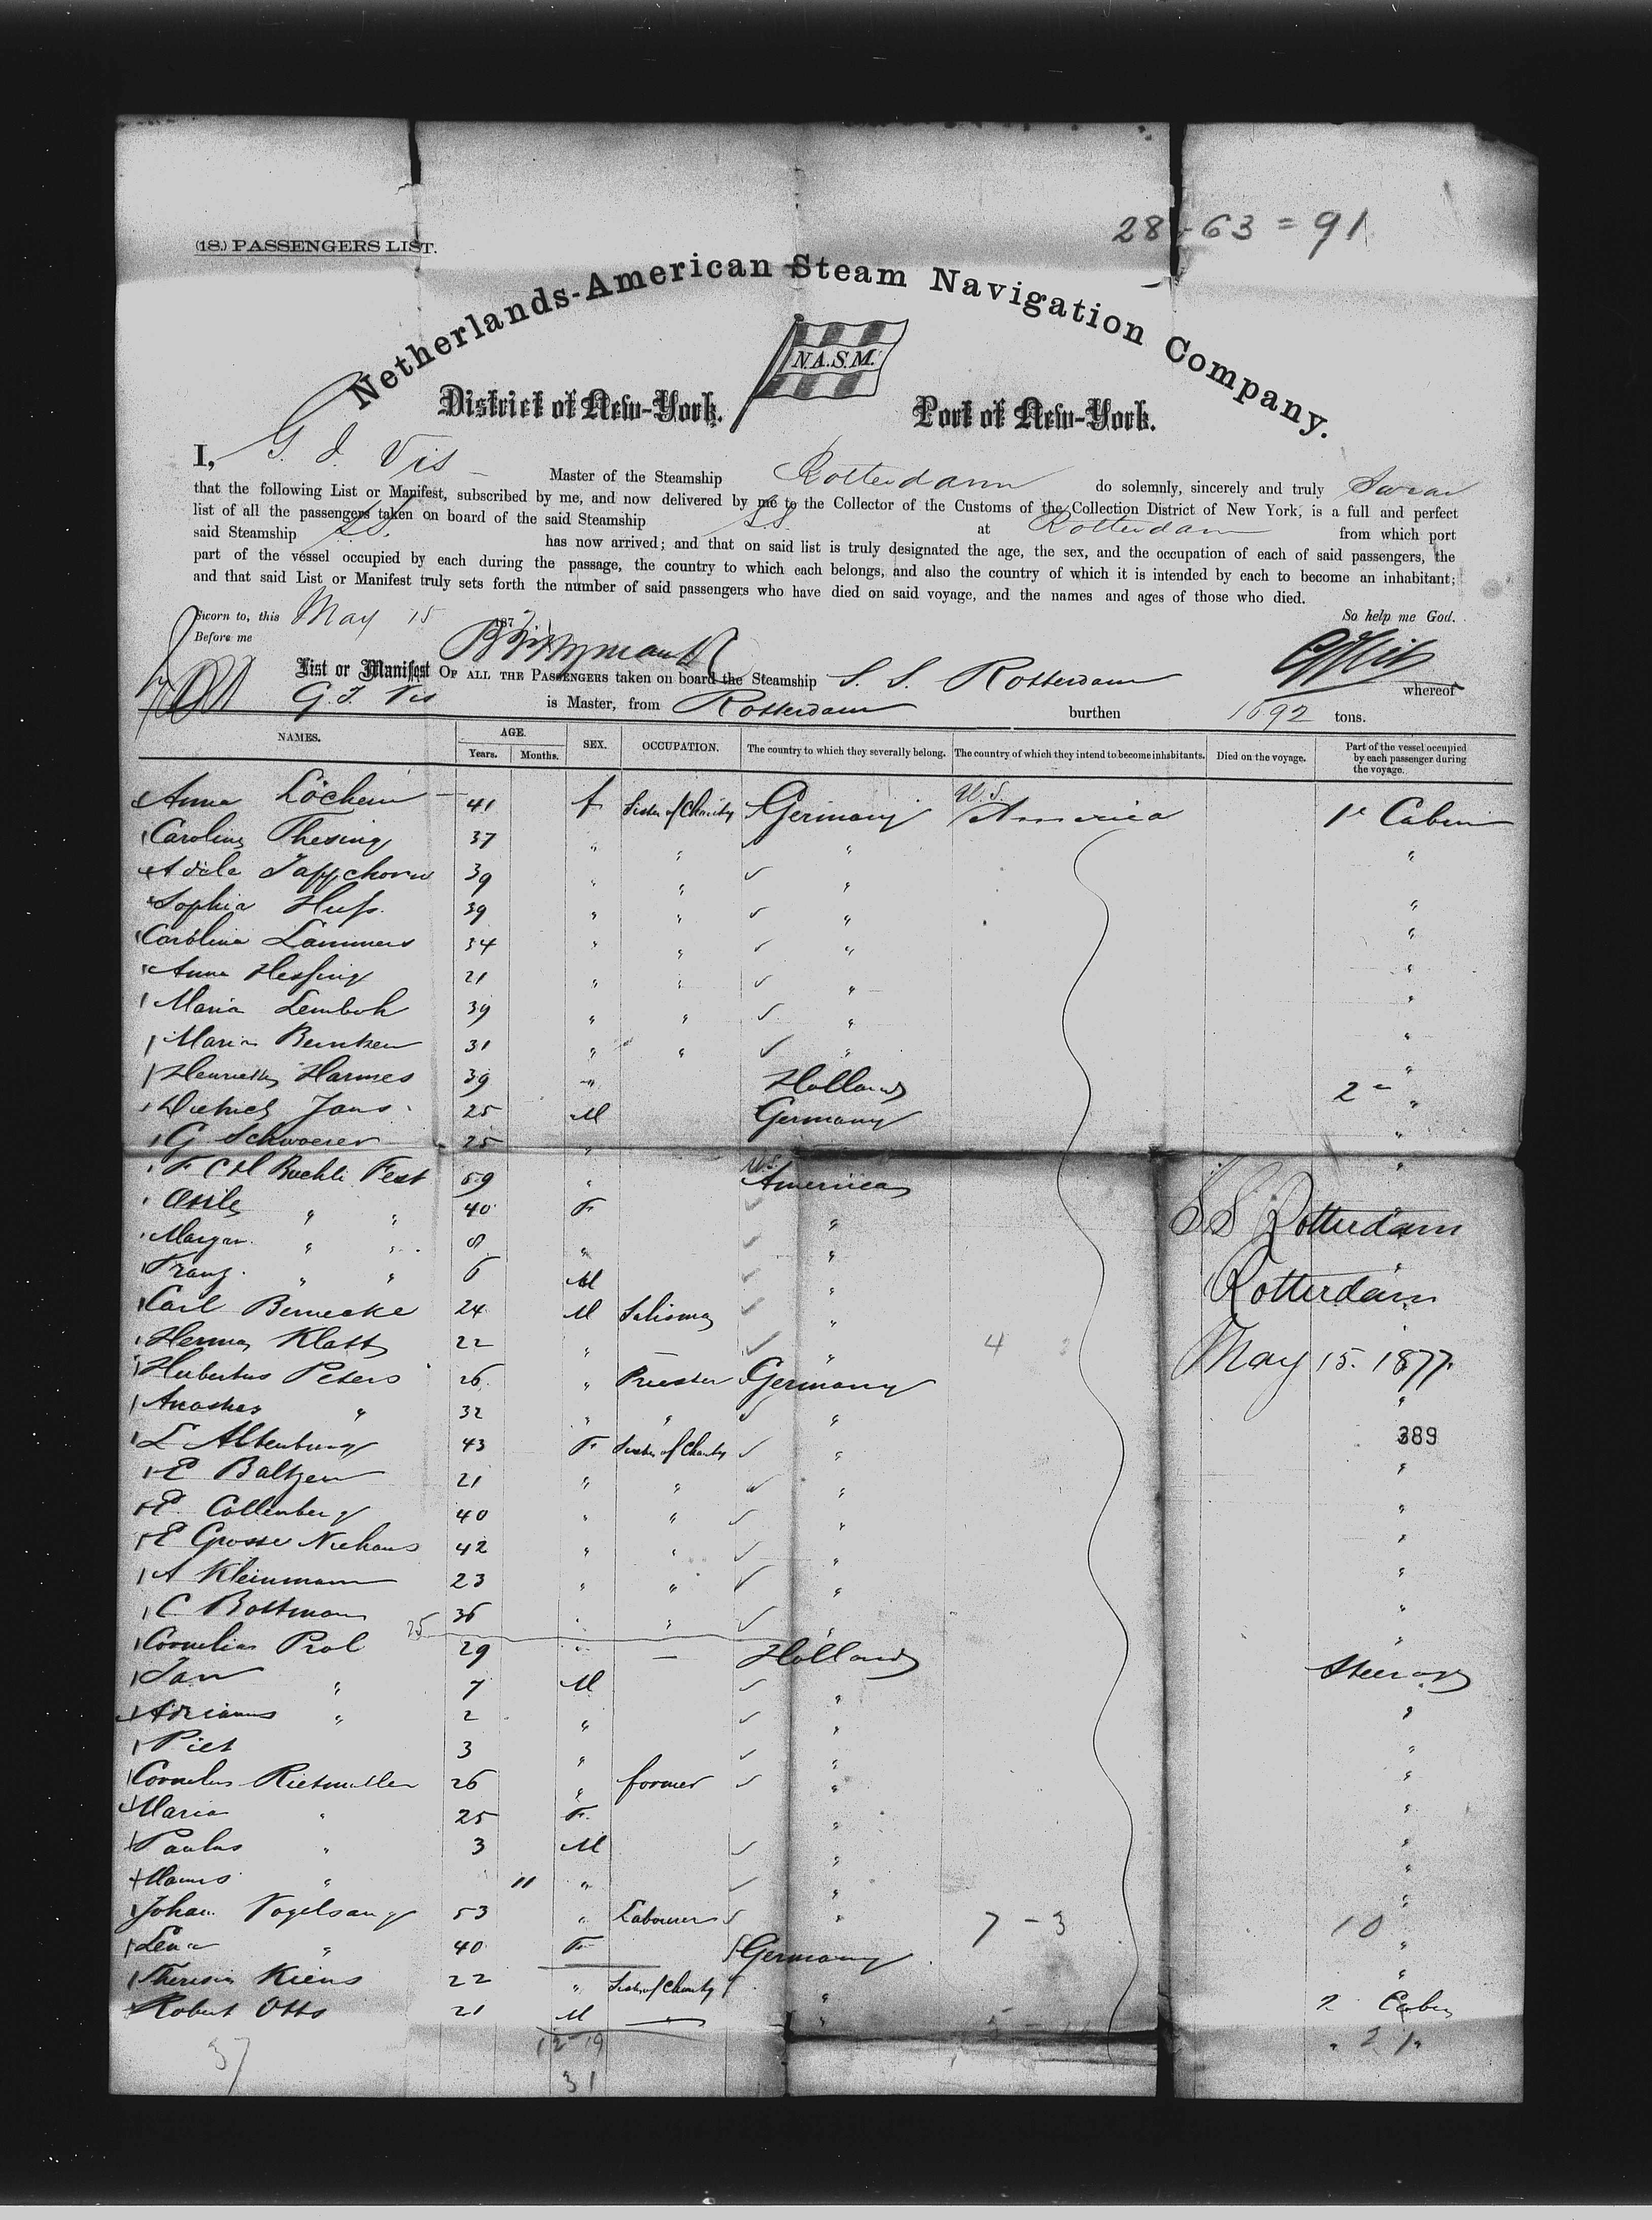 28-63=91
(18.) PASSENGERS LIST.
Netherlands-American Steam Navigation Company.
N.A.S.M.
District of New-York. Port of New-York.
I, G. J. Vis Master of the Steamship Rotterdam do solemnly, sincerely and truly Swear
that the following List or Manifest, subscribed by me, and now delivered by me to the Collector of the Customs of the Collection District of New York, is a full and perfect
list of all the passengers taken on board of the said Steamship S.S. at Rotterdam from which port
said Steamship S.S. has now arrived; and that on said list is truly designated the age, the sex, and the occupation of each of said passengers, the
part of the vessel occupied by each during the passage, the country to which each belongs, and also the country of which it is intended by each to become an inhabitant;
and that said List or Manifest truly sets forth the number of said passengers who have died on said voyage, and the names and ages of those who died.
Sworn to, this May 15 1877 So help me God.
Before me
List or Manifest OF ALL THE PASSENGERS taken on board the Steamship S. S. Rotterdam whereof
G. J. Vis is Master, from Rotterdam burthen 1692 tons.
NAMES. AGE. Years. Months. SEX. OCCUPATION. The country to which they severally belong. The country of which they intend to become inhabitants. Died on the voyage. Part of the vessel occupied by each passenger during the voyage.
Anna Löchein 41 f Sister of Charity Germany U.S. America 1e Cabin
Carolina Thesing 37 " " " "
Adele Tappchorn 39 " " " "
Sophia Hufs 39 " " " "
Carolina Lammers 34 " " " "
Anna Hessing 21 " " " "
Maria Lemboh 39 " " " "
Maria Beinken 31 " " " "
Henrietta Harmes 39 " Holland 2e "
Dietrich Jans 25 M Germany "
G Schwoerer 25 " "
F C H Buchli Fest 59 " U.S. America
" " 40 F "
Margar. " " 8 " "
Franz. " " 6 M "
Carl Bernecke 24 M "
Herman Klatt 22 " — "
Hubertus Peters 26 " Priester Germany
" 32 " " " "
L Altenburg 43 F Sister of Charity "
E Baltzer 21 " " " "
E. Collenberg 40 " " " "
E Grosse Niehaus 42 " " " "
A Kleinmann 23 " " " "
C Bottman 36 " " " "
25
Cornelia Prol 29 " — Holland Steerage
Jan " 7 M " "
Adrianus " 2 " " "
Piet 3 " " "
Cornelus Rietmuller 26 " farmer " "
Maria " 25 F. " "
Paulus " 3 M " "
" 11 " " "
Johan Vogelsang 53 " Labourer " 7-3 10
Lena " 40 F Germany "
Theresia Kiens 22 " Sister of Charity " 2 Cabin
Robert Otto 21 M — " " 2 "
SS Rotterdam
Rotterdam
May 15. 1877.
389
4
37
12-19
31